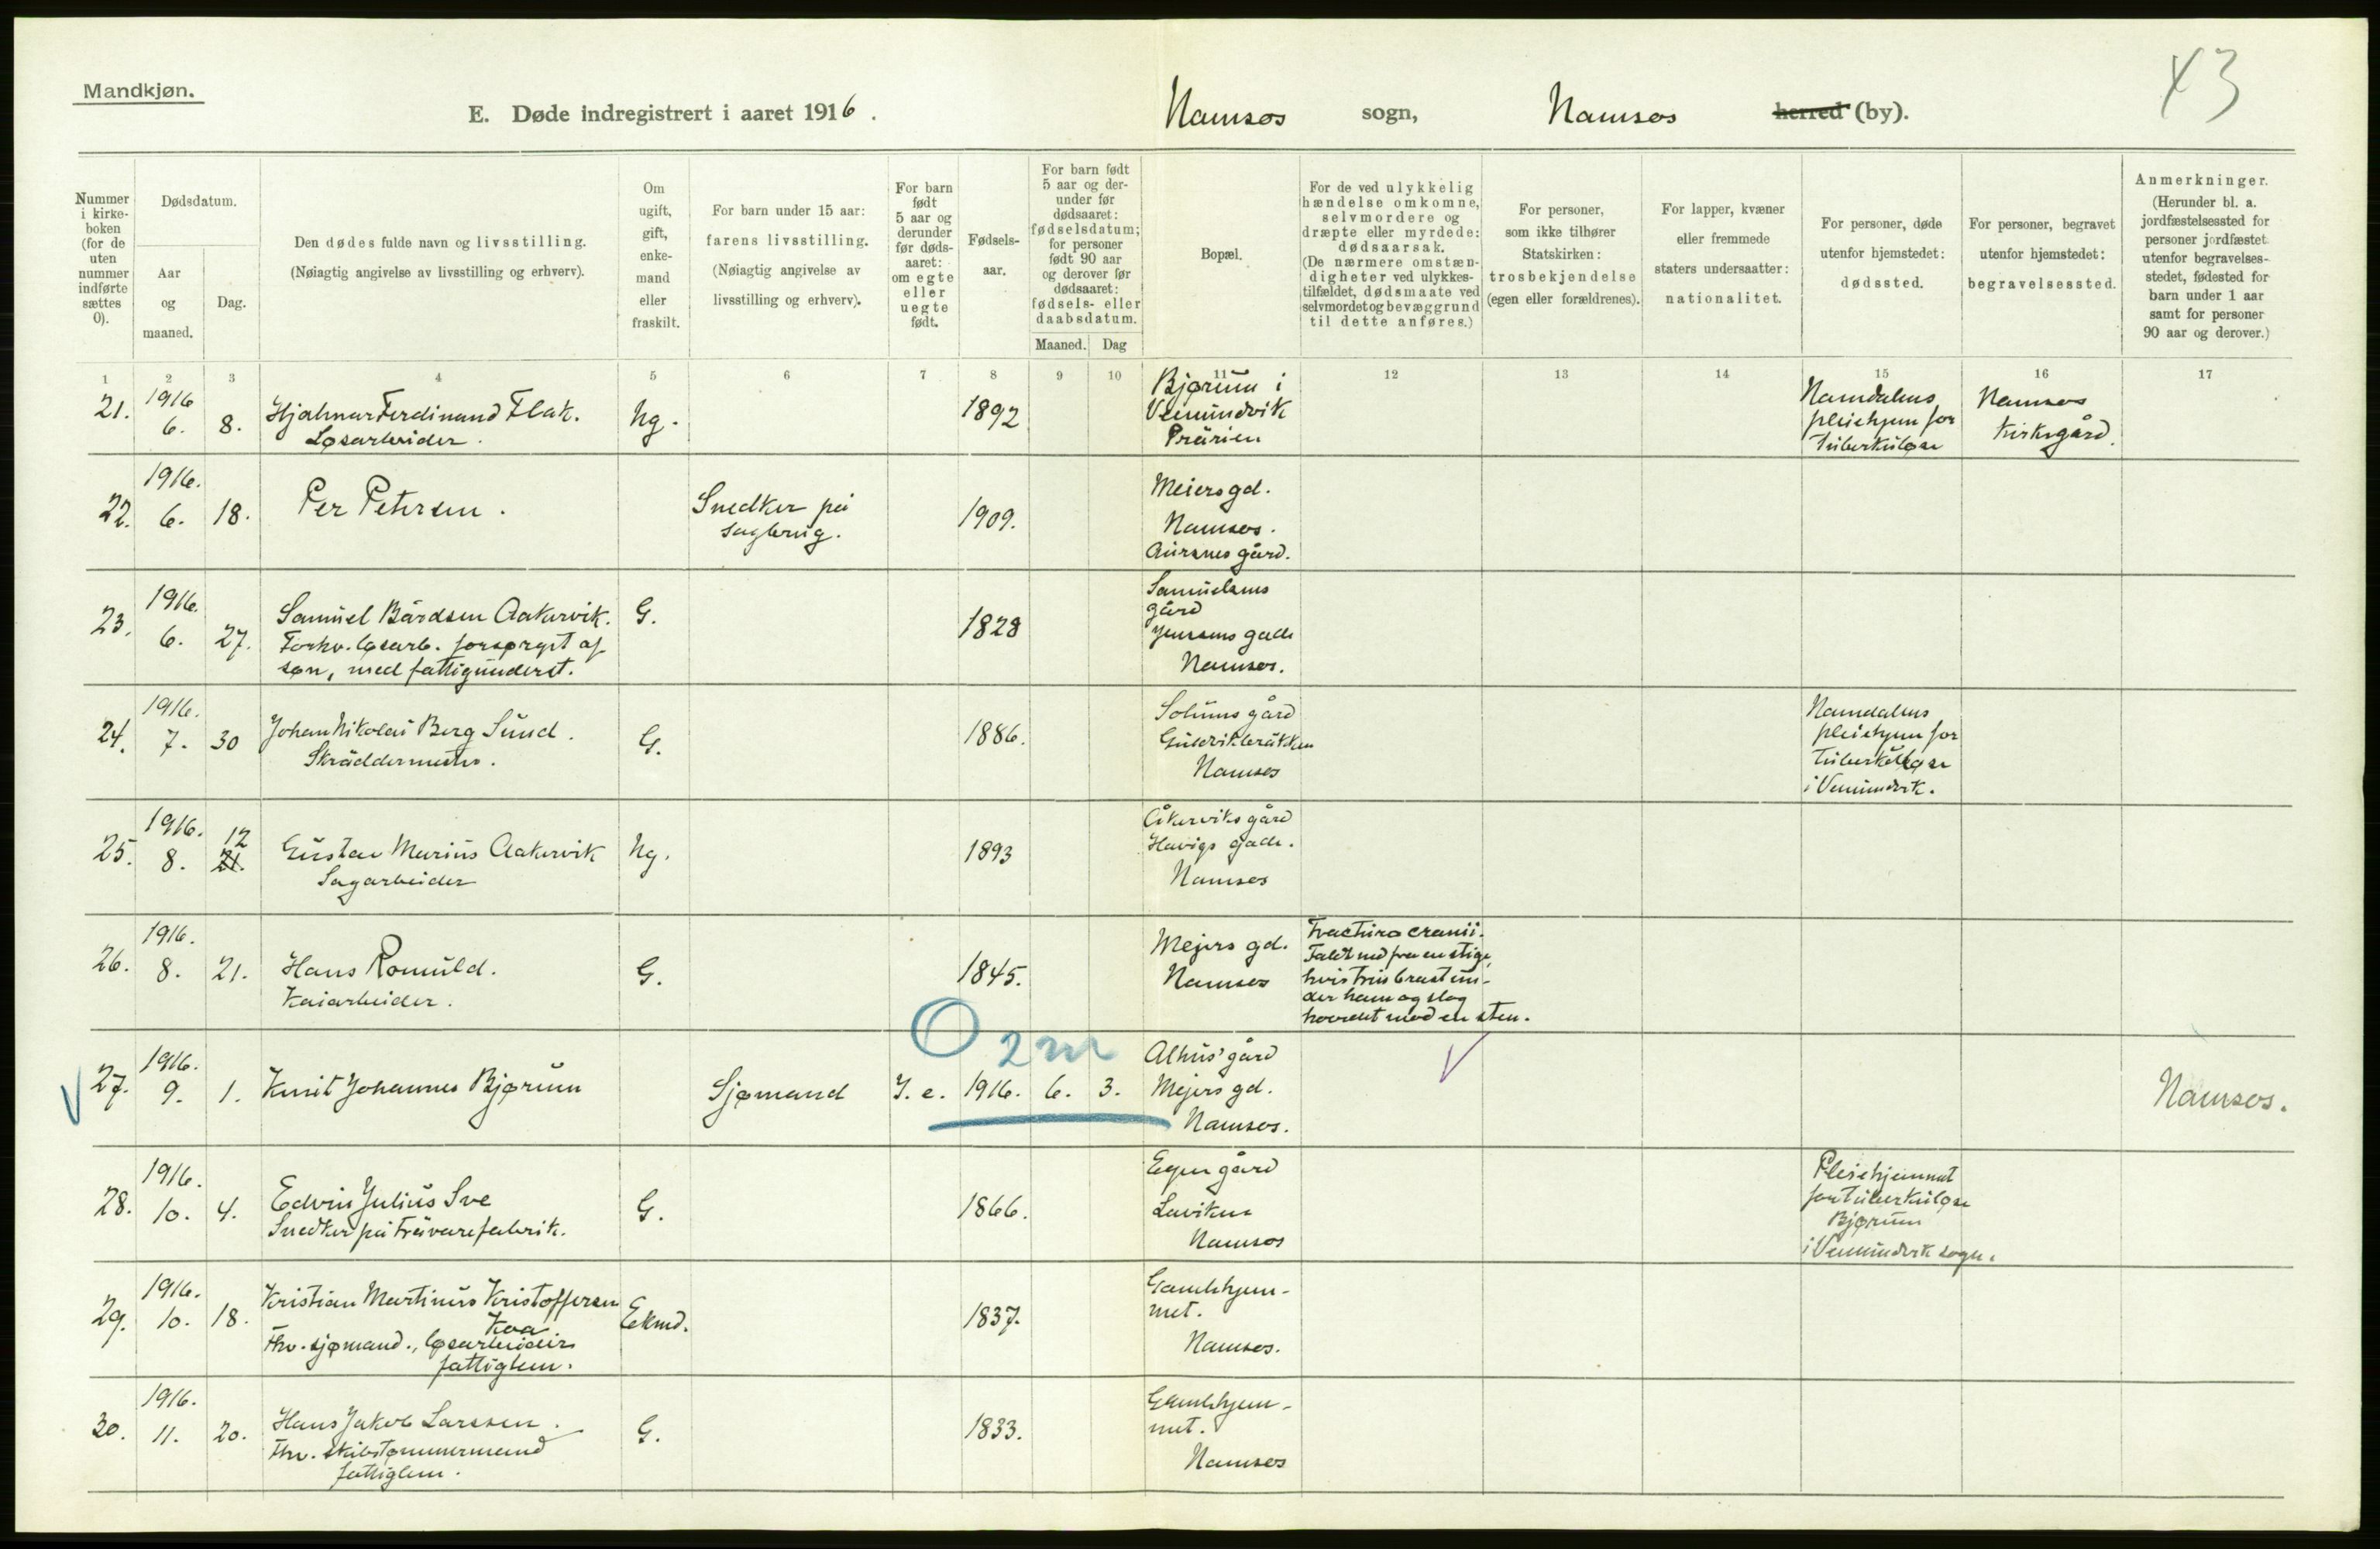 Mandkjøn.
E. Døde indregistrert i aaret 1916.
Namsos sogn, Namsos herred (by).
43
Nummer i kirke-boken (for de uten nummer indførte sættes 0).
Dødsdatum.
Aar og maaned.
Dag.
Den dødes fulde navn og livsstilling.
(Nøiagtig angivelse av livsstilling og erhverv).
Om ugift, gift, enke-mand eller fraskilt.
For barn under 15 aar: farens livsstilling.
(Nøiagtig angivelse av livsstilling og erhverv).
For barn født 5 aar og derunder før døds-aaret: om egte eller uegte født.
Fødsels-aar.
For barn født 5 aar og der-under før dødsaaret: fødselsdatum; for personer født 90 aar og derover før dødsaaret: fødsels- eller daabsdatum.
Maaned. Dag
Bopæl.
For de ved ulykkelig hændelse omkomne, selvmordere og dræpte eller myrdede: dødsaarsak.
(De nærmere omstæn-digheter ved ulykkes-tilfældet, dødsmaate ved selvmordet og bevæggrund til dette anføres.)
For personer, som ikke tilhører Statskirken: trosbekjendelse (egen eller forældrenes).
For lapper, kvæner eller fremmede staters undersaatter: nationalitet.
For personer, døde utenfor hjemstedet: dødssted.
For personer, begravet utenfor hjemstedet: begravelsessted.
Anmerkninger.
(Herunder bl. a. jordfæstelsessted for personer jordfæstet utenfor begravelses-stedet, fødested for barn under 1 aar samt for personer 90 aar og derover.)
1 2 3 4 5 6 7 8 9 10 11 12 13 14 15 16 17
21. 1916 6. 8. Hjalmar Ferdinand Flak. Ug. 1892
Løsarbeider.
Bjørum i
Vemundvik
Prärien
Namdalens
pleiehjem for
tuberkuløse
Namsos
kirkegård.
22. 1916. 6. 18. Per Petersen.
Snedker på
sagbrug.
1909.
Meiers gd.
Namsos.
Aursnes gård.
23. 1916. 6. 27. Samuel Bårdsen Aakervik. G. 1828
Forhv. løsarb. forsørget af
søn, med fattigunderst.
Samuelsens
gård
Jensens gade
Namsos.
24. 1916. 7. 30 Johan Nikolai Berg Sund. G. 1886.
Skräddermester.
Solums gård
Namsos
Namdalens
pleiehjem for
tuberkuløse
i Vemundvik.
25. 1916. 8. 21. 12 Gustav Marius Aakervik Ug. 1893
Sagarbeider
Åkerviks gård
Havigs gade.
Namsos
26. 1916. 8. 21. Hans Romuld. G. 1845.
Kaiarbeider.
Mejers gd.
Namsos
Fractura cranii.
Faldt ned fra en stige,
hvis trin brast un-
der ham og slog
hovedet mod en sten.
O 2 m
27. 1916. 9. 1. Knut Johannes Bjørum Sjømand I. e. 1916. 6. 3.
Alhus' gård
Mejers gd.
Namsos.
Namsos.
28. 1916. 10. 4. Edvin Julius Sve G. 1866.
Snedker på trävarefabrik.
Egen gård
Laviken
Namsos
Pleiehjemmet
for tuberkuløse
Bjørum
i Vemundvik sogn.
29. 1916. 10. 18. Kristian Martinus Kristoffersen
Koa
Ekmd. 1837.
Fhv. sjømand., løsarbeider
fattiglem.
Gamlehjem-
met.
Namsos.
30. 1916. 11. 20. Hans Jakob Larssen. G. 1833.
Fhv. skibstømmermand
fattiglem.
Gamlehjem-
met.
Namsos